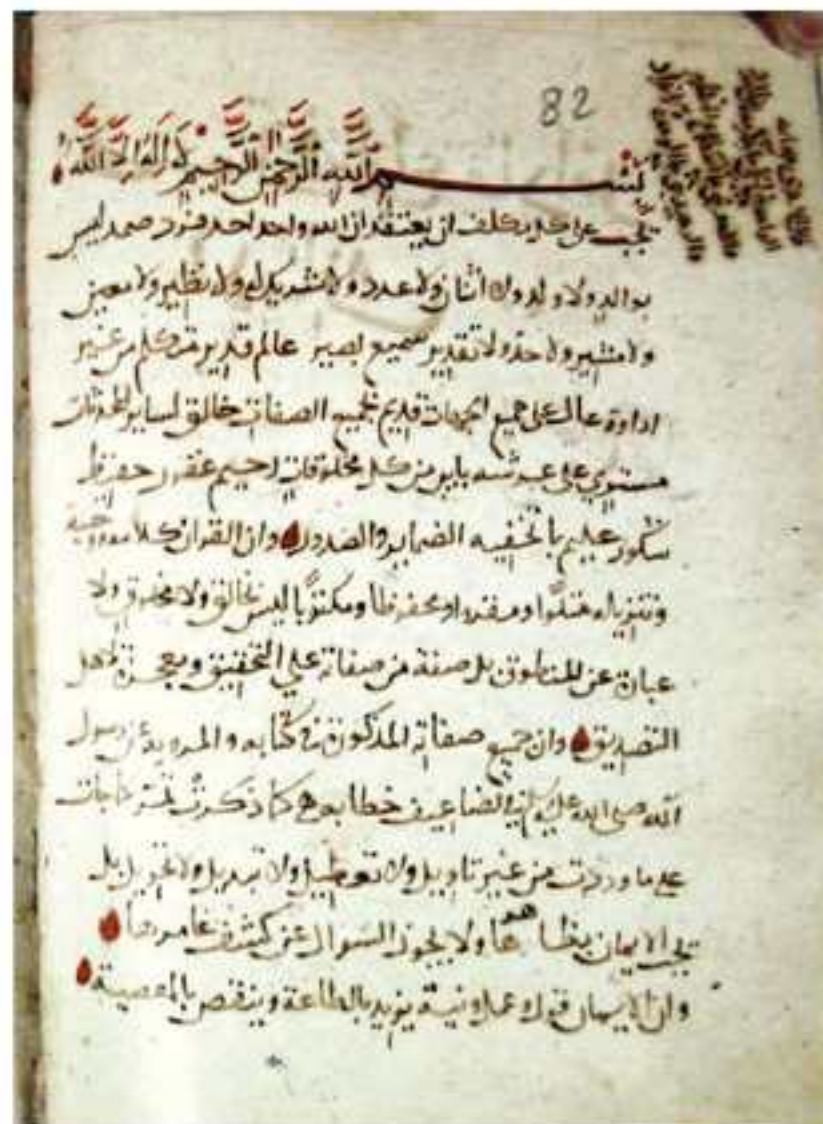 82
بسم الله الرحمن الرحيم لا اله الا الله
يجب على كل مكلف ان يعتقد ان الله واحد احد فرد صمد ليس
بوالد ولا ولد ولا اثنان ولا عدد ولا شريك له ولا نظير ولا معين
ولا مشير ولا حد ولا تقدير سميع بصير عالم قدير متكلم من غير
اداوة عال على جميع الجهات قديم بجميع الصفات خالق لساير المحدثات
مستوي على عرشه باين من كل مخلوقات رحيم غفور حفيظ
شكور عليم بما تخفيه الضماير والصدور وان القران كلامه
وتنزيله متلوا ومحفوظا ومكتوبا ليس بخالق ولا مخلوق ولا
عبارة عن المنطوق بل صفة من صفاته علي التحقيق ومعجزة لاهل
التصديق وان جميع صفاته المذكورة في كتابه والمروية عن رسول
الله صلى الله عليه في خطابه كما ذكرت
على ما وردت من غير تاويل ولا تعطيل ولا تبديل ولا تحويل بل
يجب الايمان بظاهرها ولا يجوز السوال عن كشف غامرها
وان الايمان قول وعمل ونية يزيد بالطاعة وينقص بالمعصية